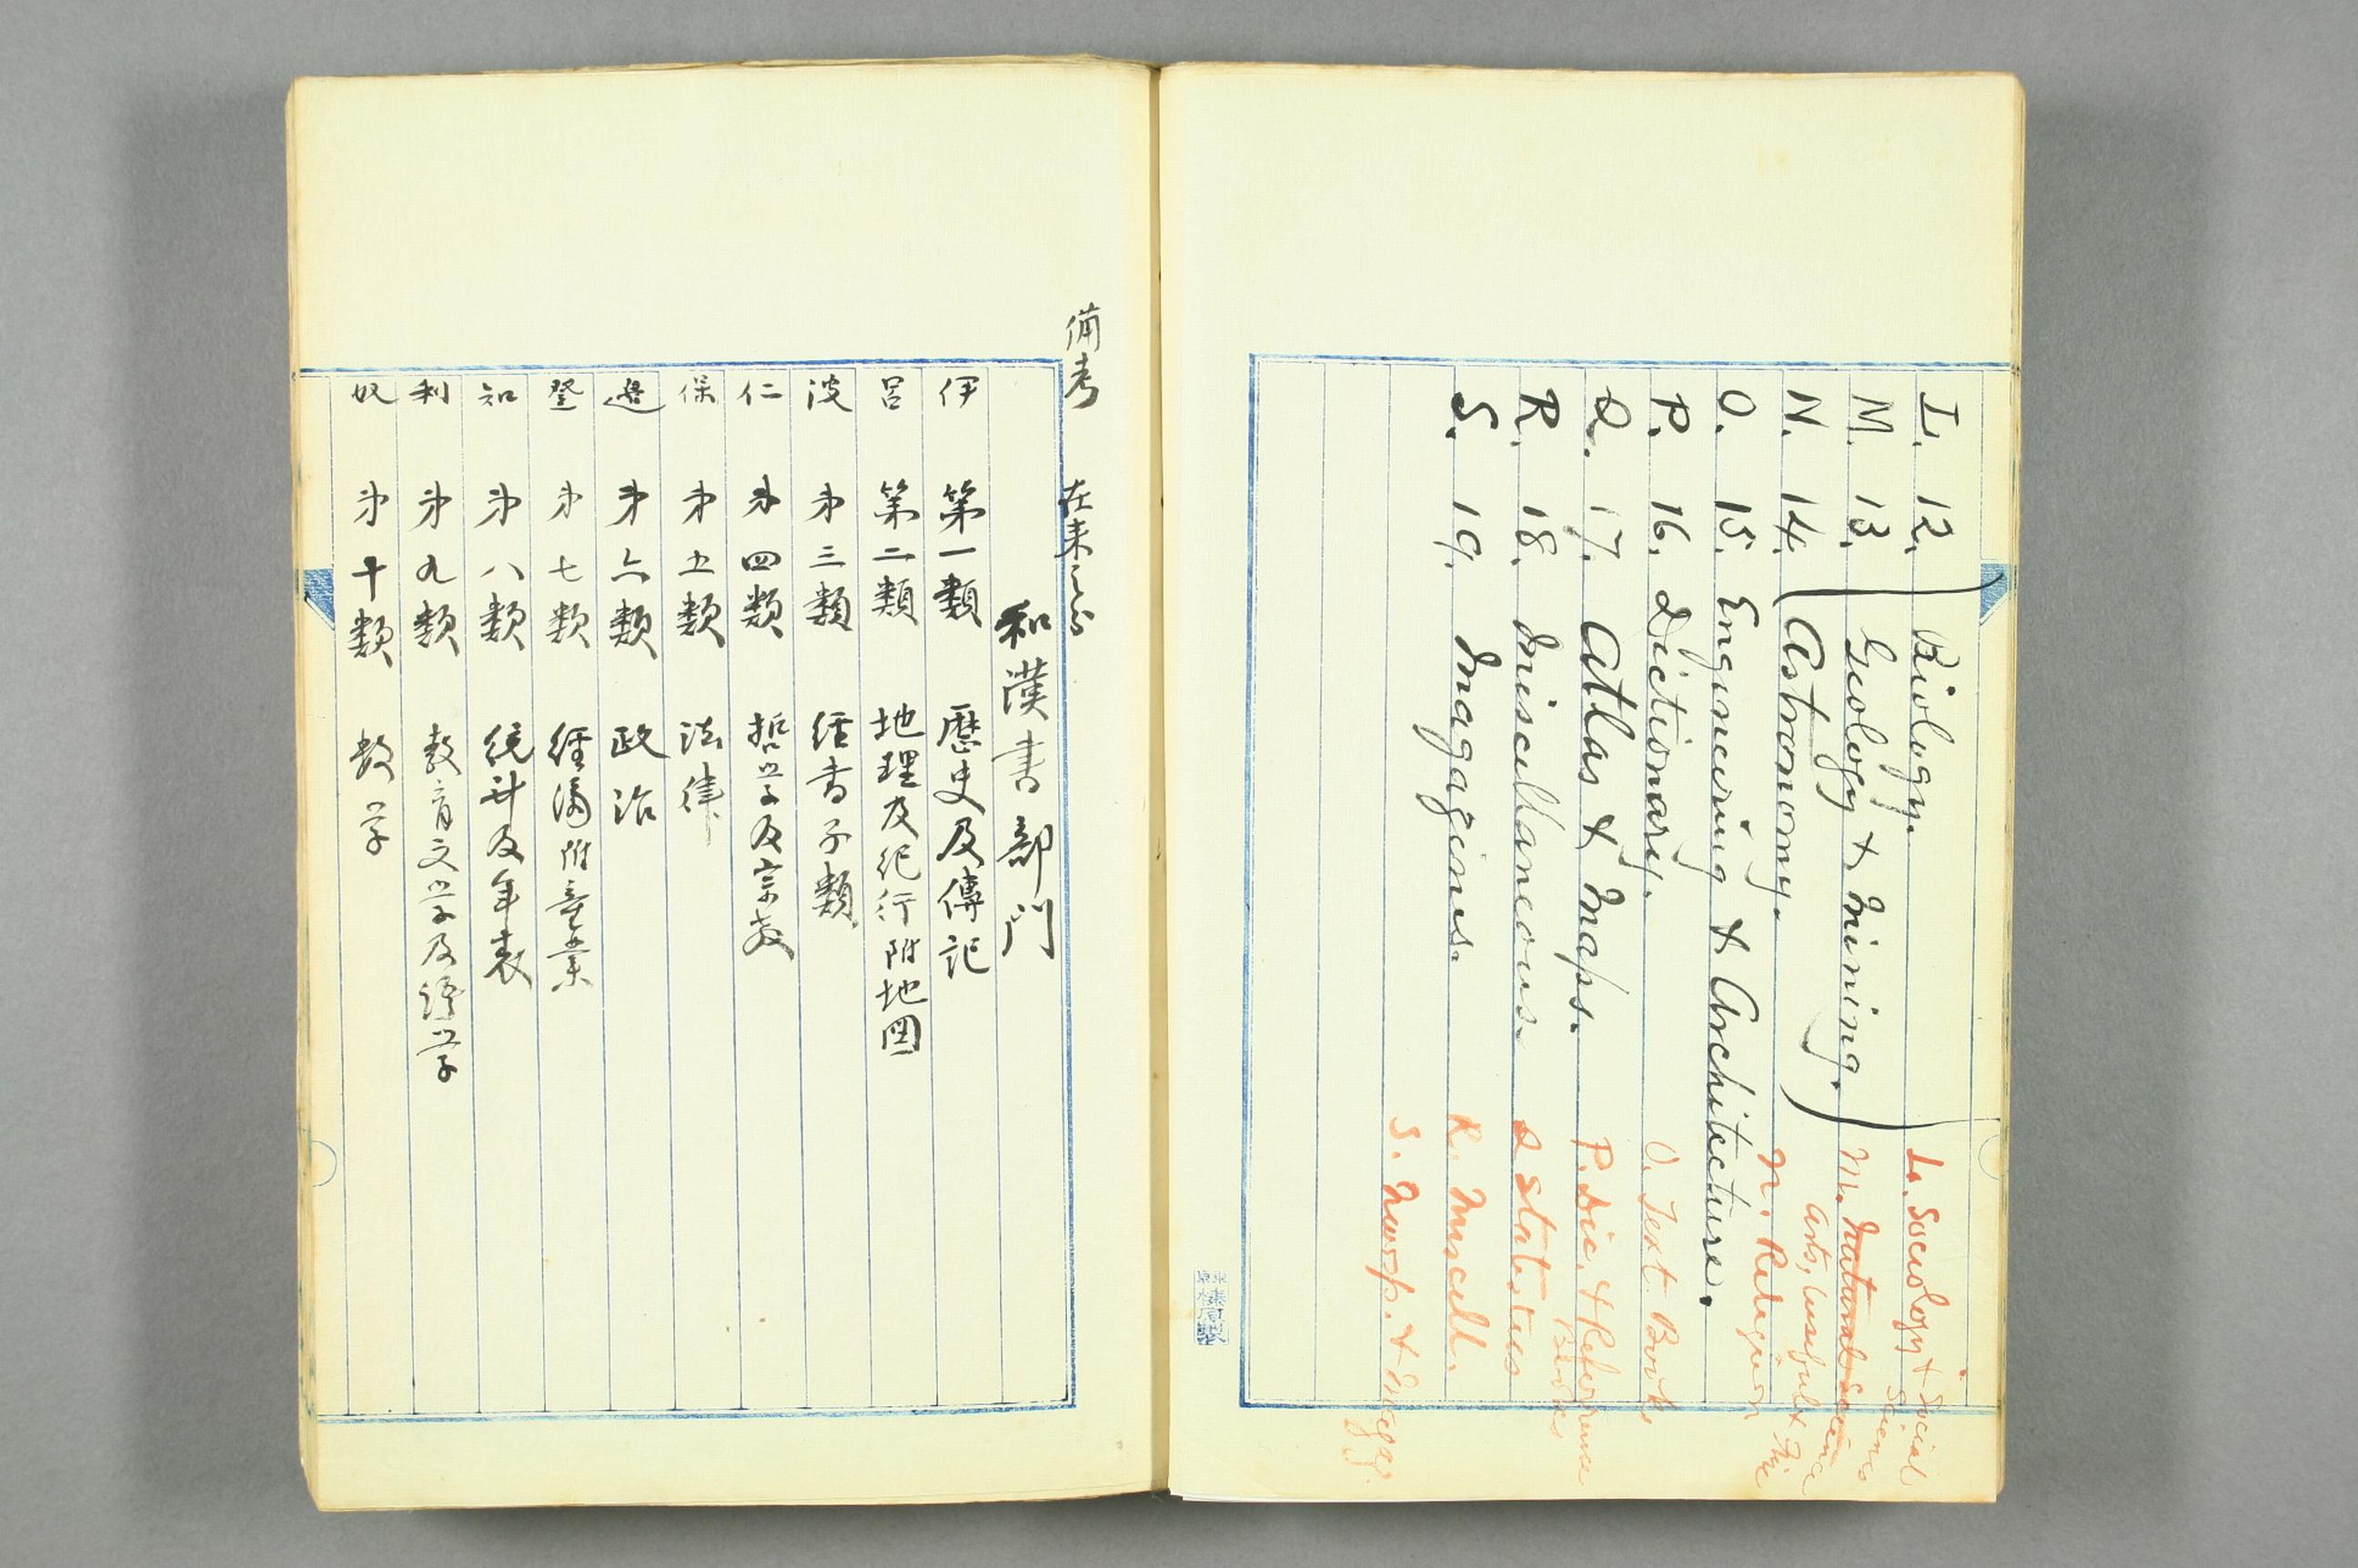 L. 12. Biology.
M. 13. Geology & Mining.
N. 14. Astronomy.
O. 15. Engineering & Architecture.
P. 16. Dictionary.
Q. 17. Atlas & Maps.
R. 18. Miscellaneous.
S. 19. Magazines.
L. Sociology & Social Science
M. Natural Science
Arts, useful & Fine
N. Religion
O. Text. Books
P. Dic. & Reference Books
Q Statistics
R. Miscell.
S. Newsp. & Magaz.
備考 在来ノ分
和漢書部門
伊 第一類 歴史及傳記
呂 第二類 地理及紀行附地図
波 㐧三類 経書子類
仁 㐧四類 哲学及宗教
保 㐧五類 法律
邊 㐧六類 政治
登 㐧七類 経済附産業
知 㐧八類 統計及年表
利 㐧九類 教育文学及語学
奴 㐧十類 数学